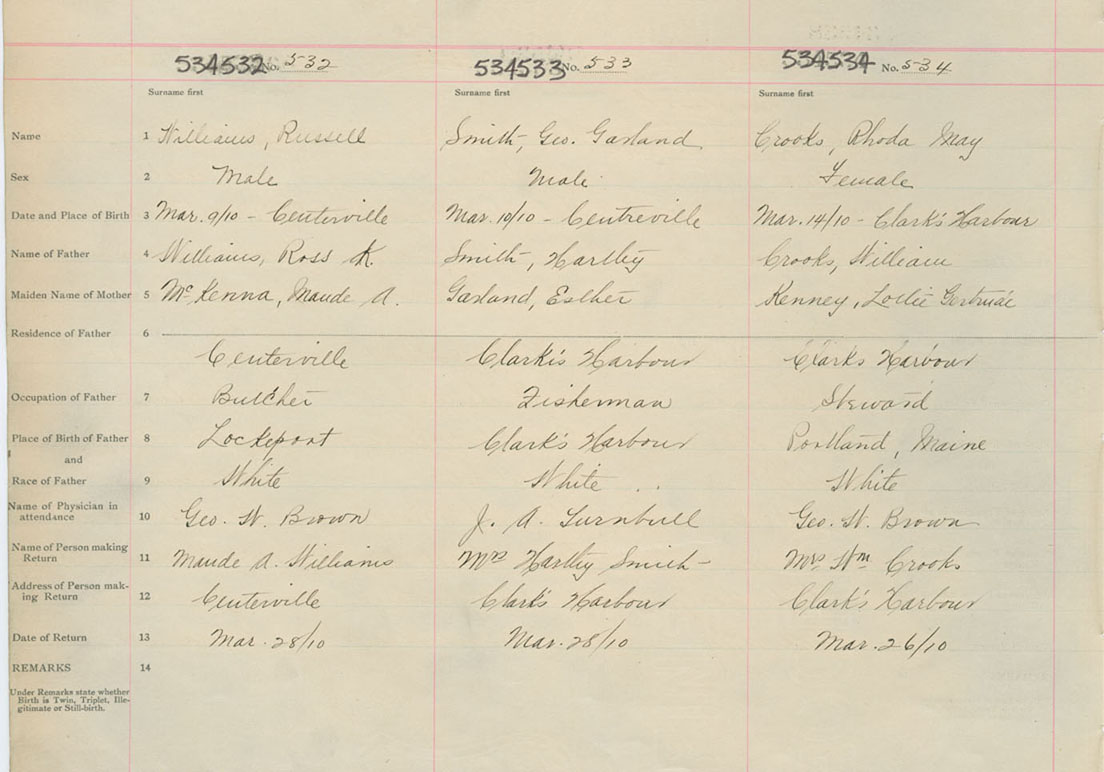 534532 No. 532 534533 No. 533 534534 No. 534
Surname first Surname first Surname first
Name 1 Williams, Russell Smith, Geo. Garland Crooks, Rhoda May
Sex 2 Male Male Female
Date and Place of Birth 3 Mar. 9/10 - Centerville Mar. 10/10 - Centreville Mar. 14/10 - Clark's Harbour
Name of Father 4 Williams, Ross K. Smith, Hartley Crooks, William
Maiden Name of Mother 5 McKenna, Maude A. Garland, Esther Kenney, Lollie Gertrude
Residence of Father 6
Centerville Clark's Harbour Clarks Harbour
Occupation of Father 7 Butcher Fisherman Steward
Place of Birth of Father 8 Lockeport Clark's Harbour Portland, Maine
and
Race of Father 9 White White White
Name of Physician in
attendance 10 Geo. W. Brown J. A. Turnbull Geo. W. Brown
Name of Person making
Return 11 Maude A. Williams Mrs Hartley Smith Mrs Wm Crooks
Address of Person mak-
ing Return 12 Centerville Clark's Harbour Clark's Harbour
Date of Return 13 Mar. 28/10 Mar. 28/10 Mar. 26/10
REMARKS 14
Under Remarks state whether
Birth is Twin, Triplet, Ille-
gitimate or Still-birth.